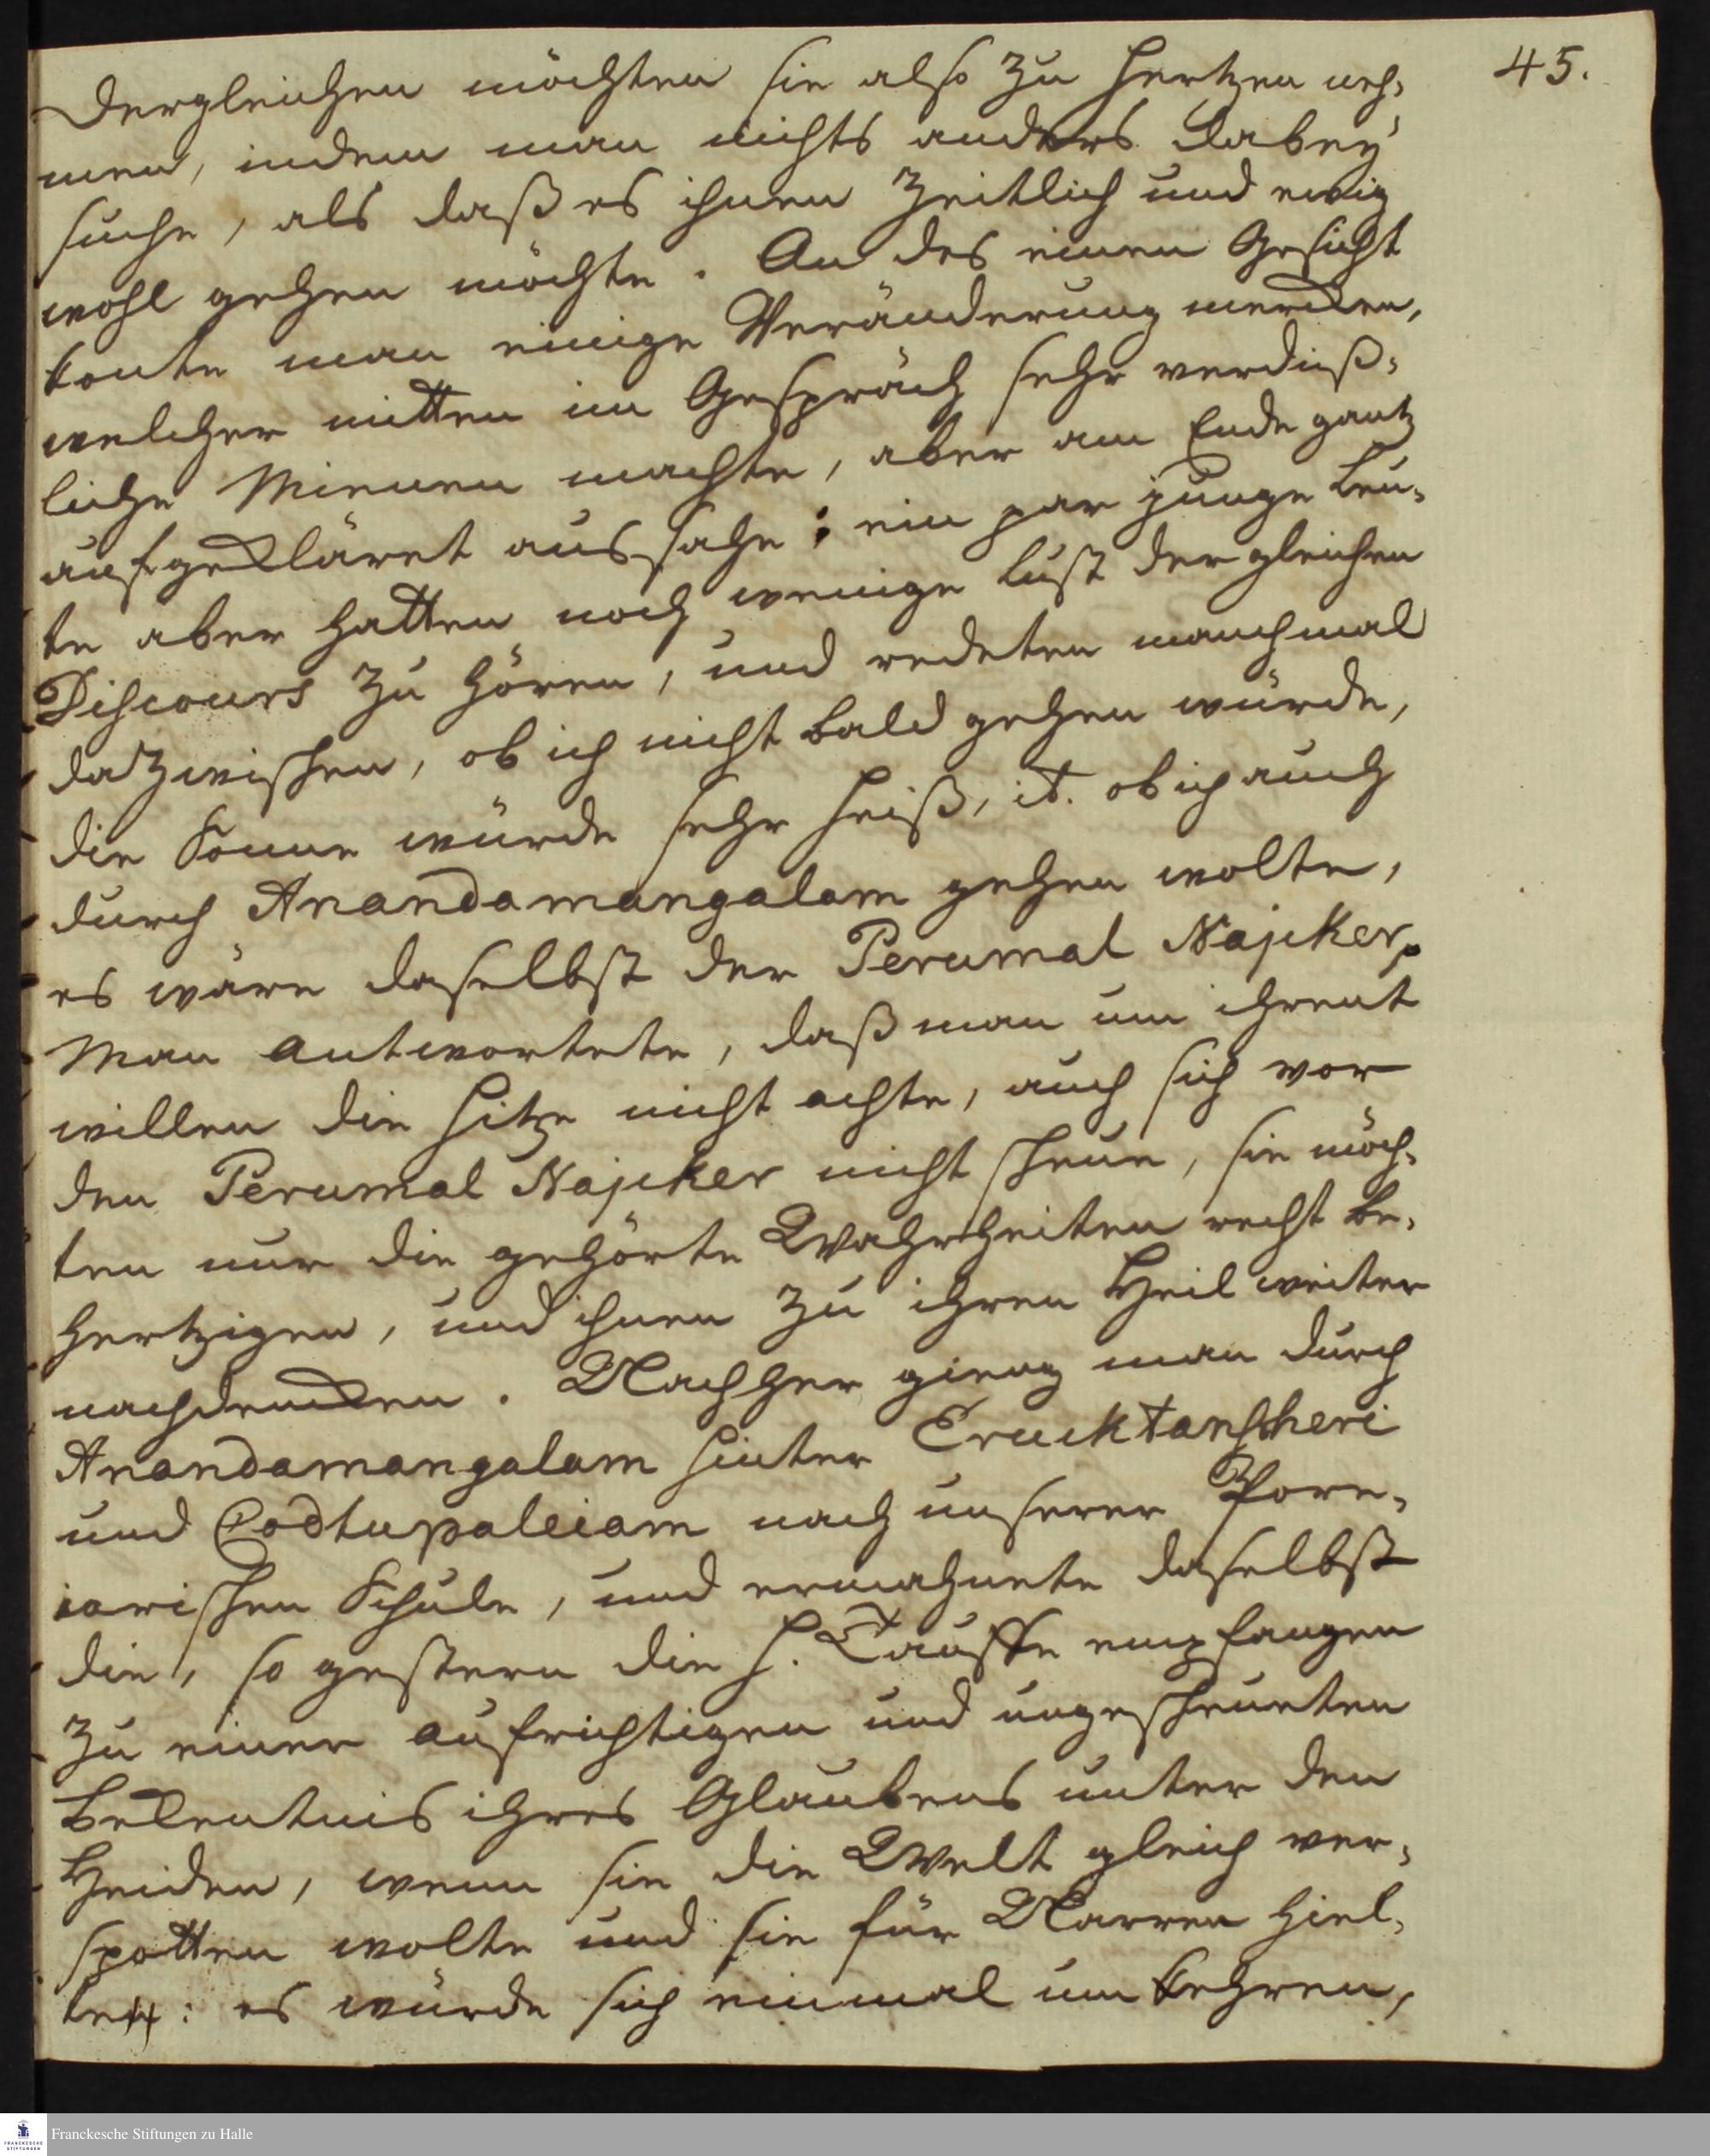 45.
Dergleichen möchten sie also zu Hertzen neh-
men, indem man nichts anders dabey
suche, als daß es ihnen zeitlich und ewig
wohl gehen möchte. An des einen Gesicht
konte man einige Veränderung mercken,
welcher mitten im Gespräch sehr verdrieß-
liche Mienen machte, aber am Ende gantz
aufgekläret aussahe; ein par junge Leu-
te aber hatten noch wenige Lust dergleichen
Discours zu hören, und redeten manchmal
dazwischen, ob ich nicht bald gehen würde,
die Sonne würde sehr heiß, it. ob ich auch
durch Anandamangalam gehen wolte,
es wäre daselbst der Perumal Najcker,
Man antwortete, daß man um ihrent
willen die Hitze nicht achte, auch sich vor
den Perumal Najcker nicht scheue, sie möch-
ten nur die gehörte Wahrheiten recht be-
hertzigen, und ihnen zu ihren Heil weiter
nachdencken. Nachher gieng man durch
Anandamangalam hinter Erucktanscheri
und Codtupaleiam nach unserer Pore-
iarischen Schule, und ermahnete daselbst
die, so gestern die H. Tauffe empfangen
zu einer aufrichtigen und ungescheueten
Bekentnis ihres Glaubens unter den
Heiden, wenn sie die Welt gleich ver-
spotten wolte und sie für Narren hiel-
te: es würde sich einmal um kehren,
Franckesche Stiftungen zu Halle